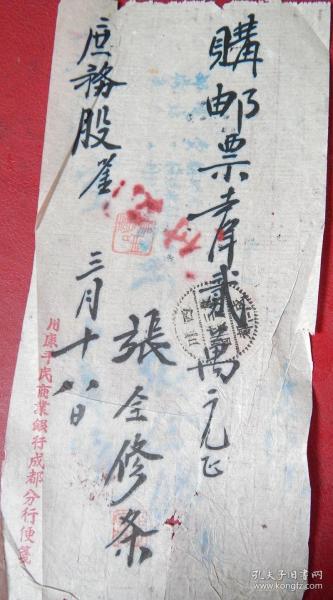 購邮票壹仟贰萬元正
庶務股
三月十八日
張全修条
川康平民商業銀行成都分行便箋
孔夫子旧书网
kongfz.com